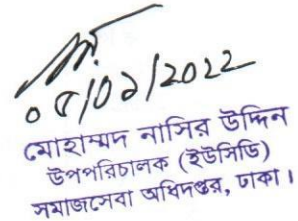 ০৫/০১/2022
মোহাম্মদ নাসির উদ্দিন
উপপরিচালক (ইউসিডি)
সমাজসেবা অধিদপ্তর, ঢাকা।